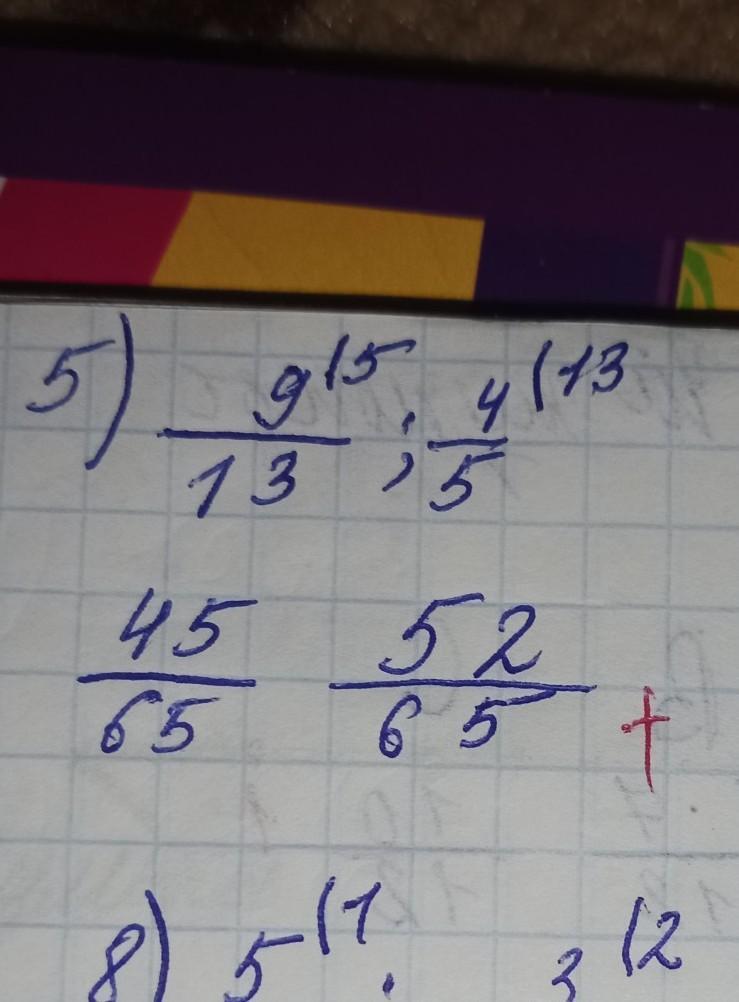 5) 9(5 ; 4(13
13 5
45 52
65 65 +
8) 5(1 ; 3(2